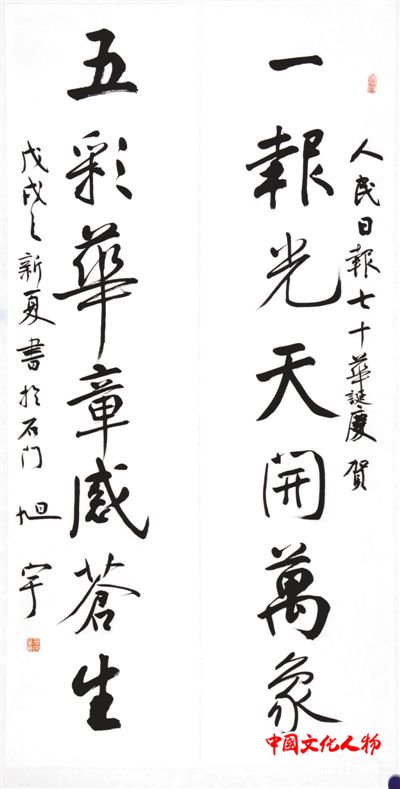 人民日報七十華誕慶賀
一報光天開萬象
五彩華章感蒼生
戊戌之新夏書於石门 旭宇
中國文化人物